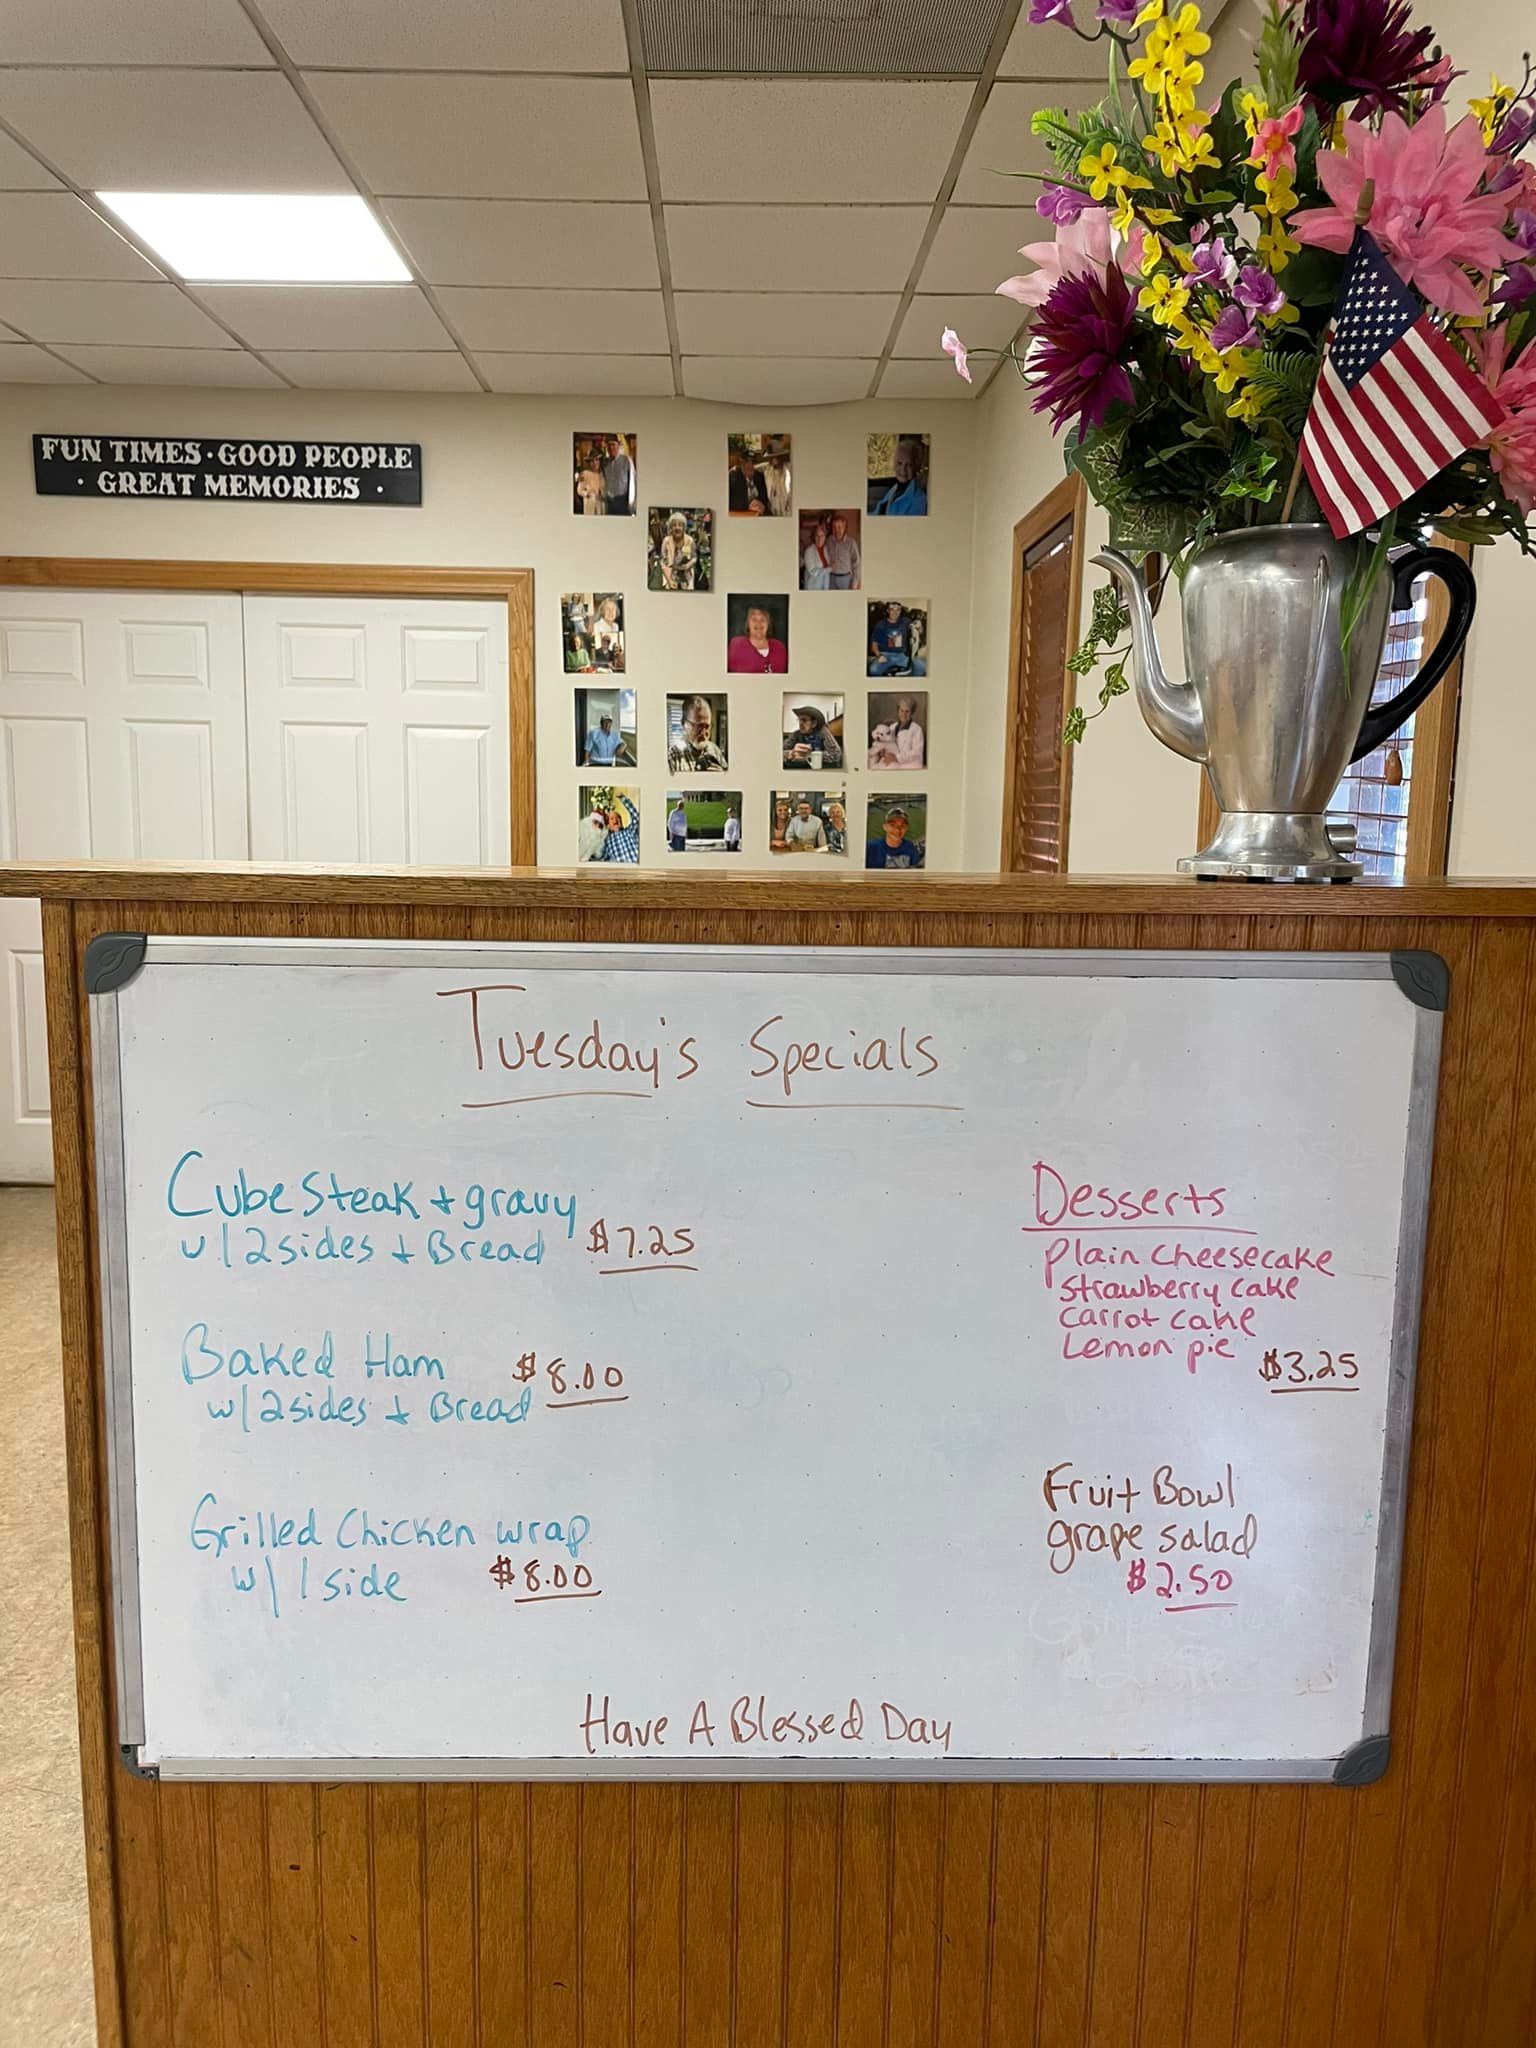 FUN TIMES · GOOD PEOPLE
· GREAT MEMORIES ·
Tuesday's Specials
Cube Steak + gravy
w/ 2 sides + Bread $7.25
Baked Ham $8.00
w/ 2 sides + Bread
Grilled Chicken wrap
w/ 1 side $8.00
Desserts
Plain Cheesecake
Strawberry Cake
Carrot Cake
Lemon pie $3.25
Fruit Bowl
grape salad
$2.50
Have A Blessed Day